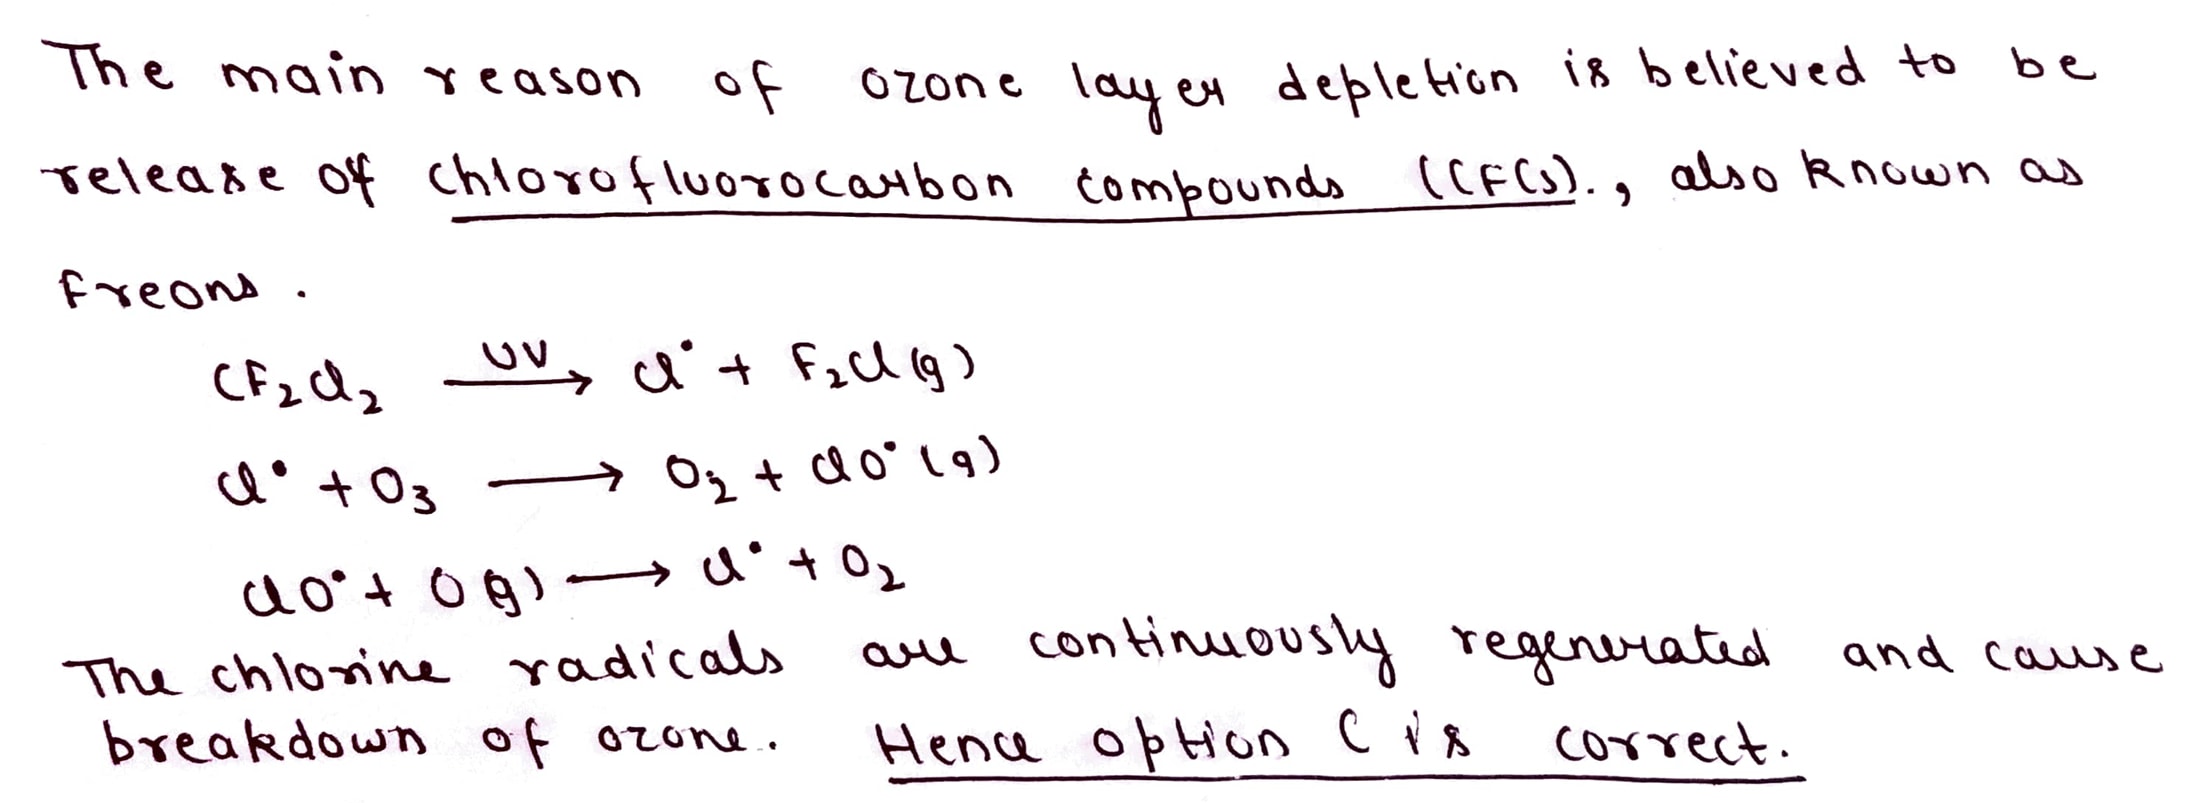 The main reason of ozone layer depletion is believed to be
release of chlorofluorocarbon compounds (CFCs)., also known as
freons.
CF₂Cl₂ —UV→ Cl• + F₂Cl(g)
Cl• + O₃ ⟶ O₂ + ClO• (g)
ClO• + O(g) ⟶ Cl• + O₂
The chlorine radicals are continuously regenerated and cause
breakdown of ozone. Hence option C is correct.